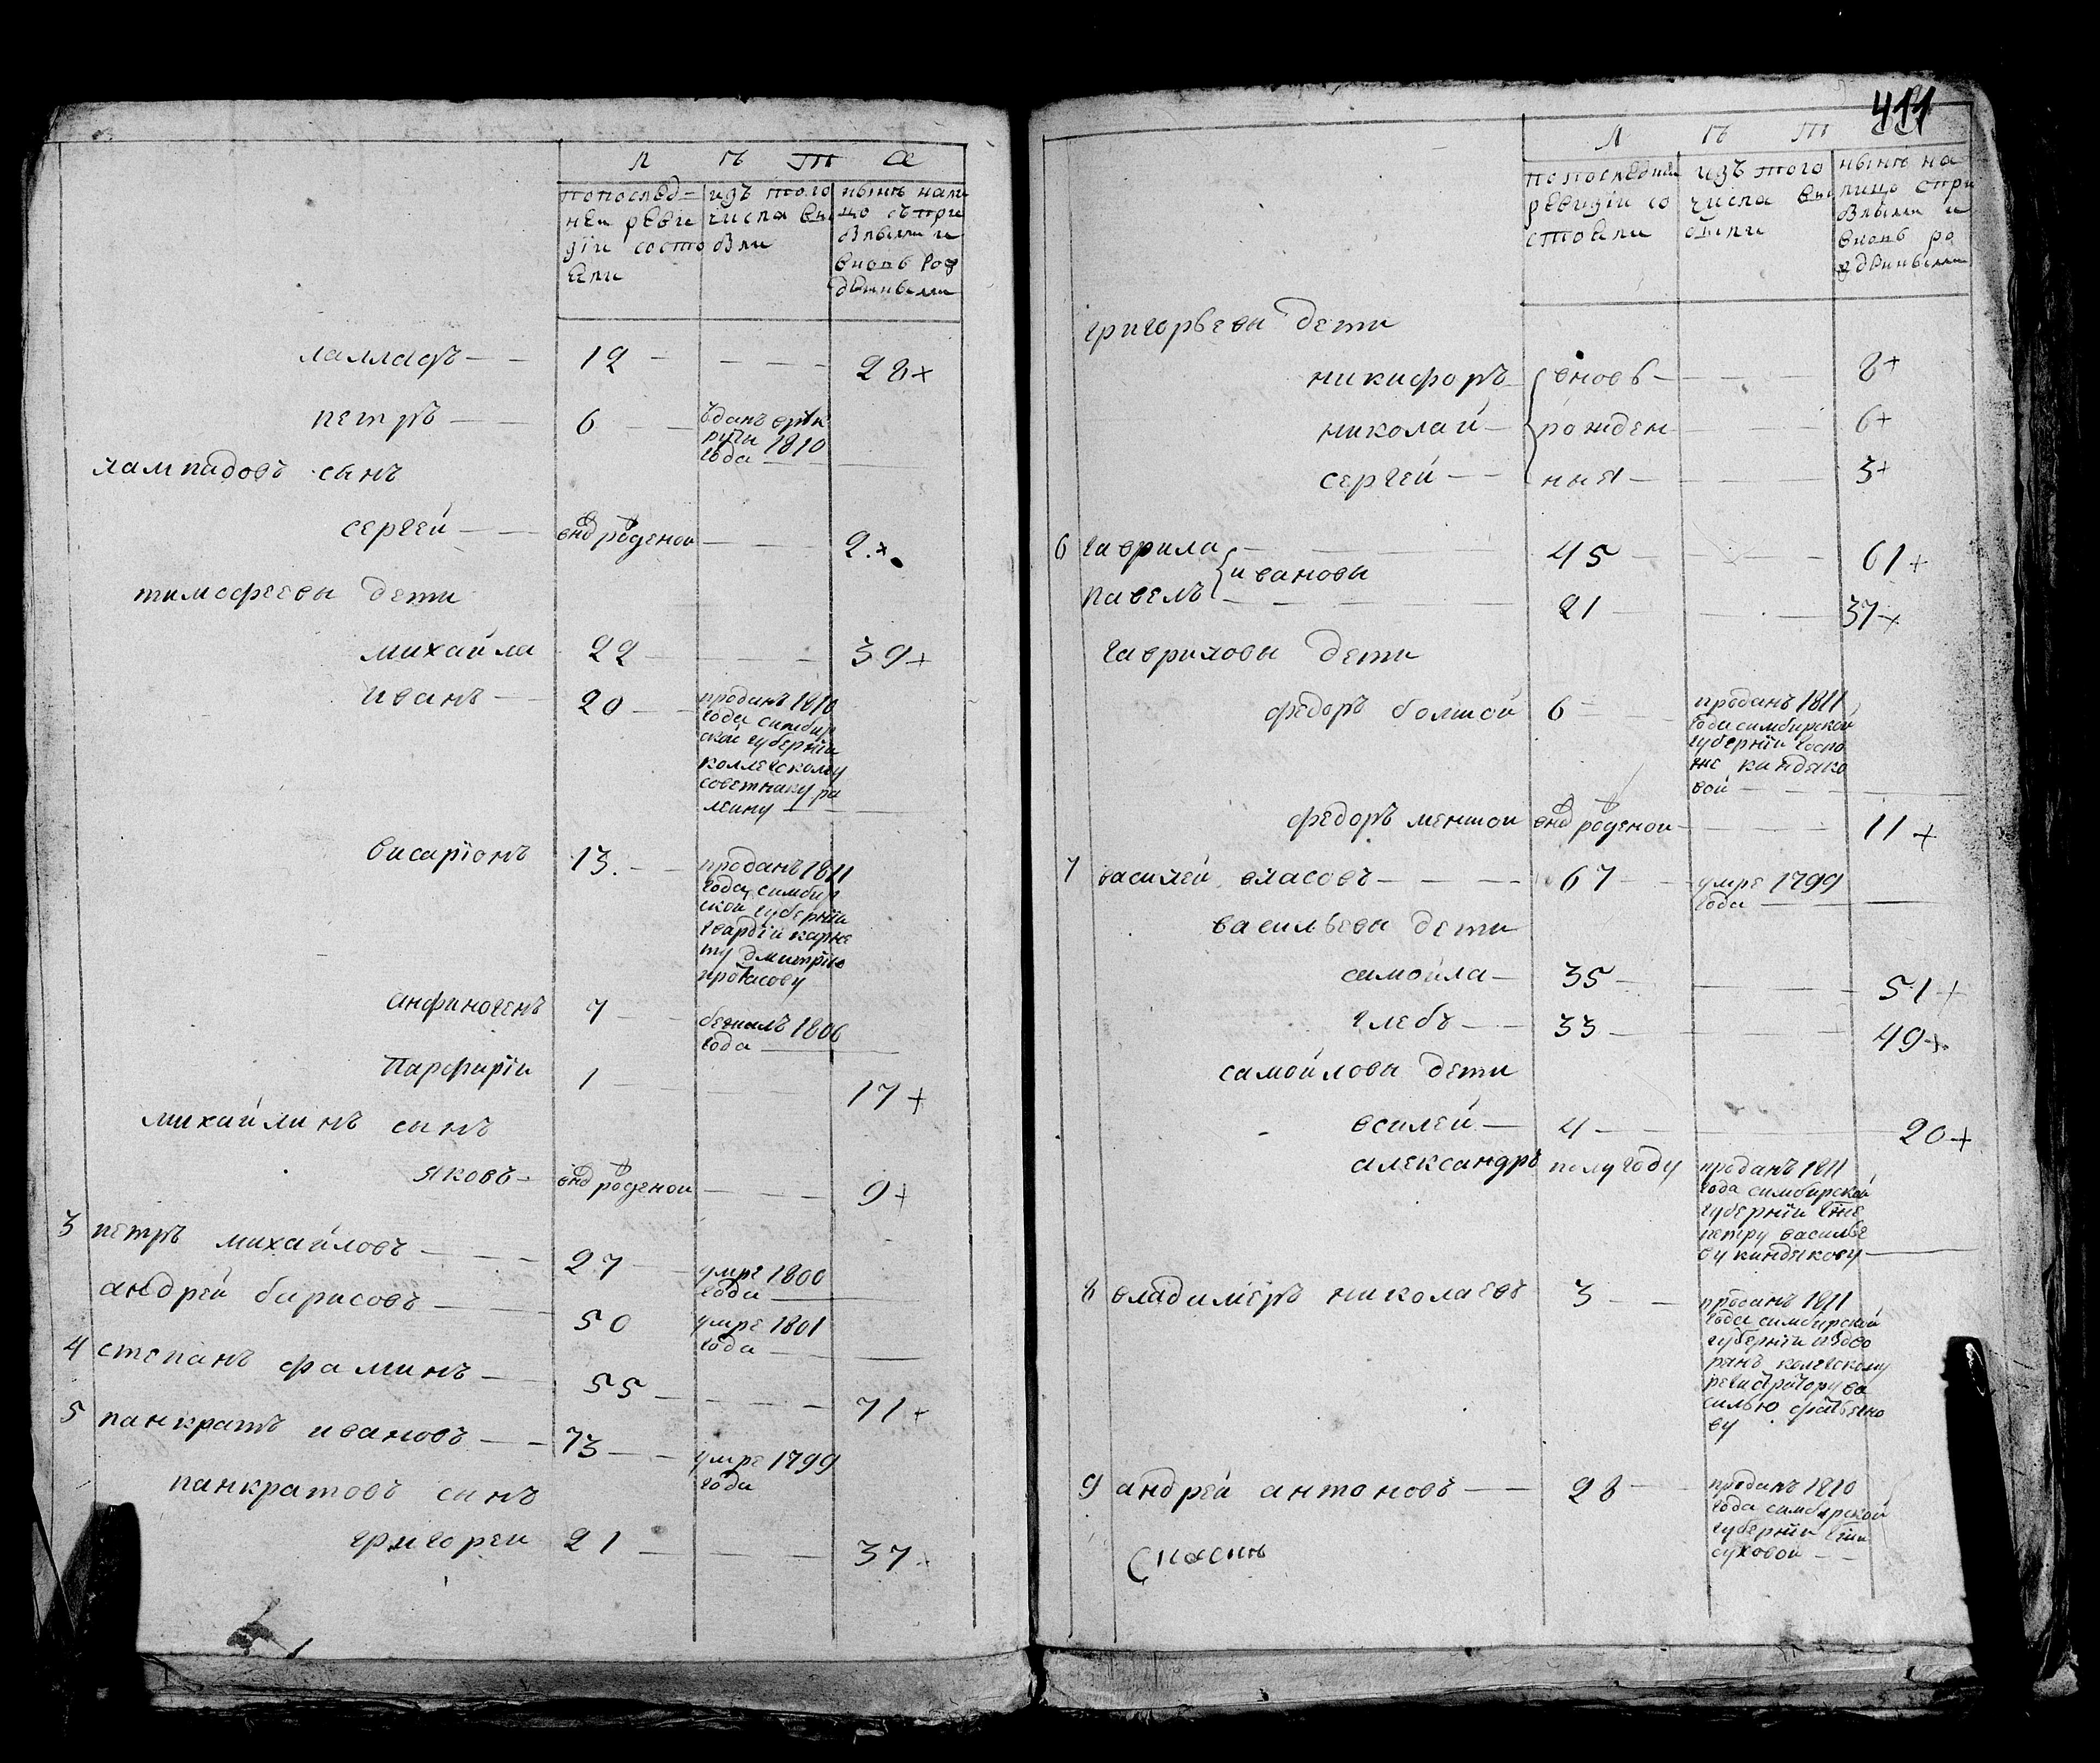 Л Ѣ Т А
попослед= изъ того нынѣ нали
неи реви числа вы цо съпри
зіи состо были былыми и
яли вновь рож
денными
12 — — — 28+
петръ — — 6 — — ѣданъ врѣк
руты 1810
года —
лампадовъ сынъ
сергей — — внѡ рѡденои — — — 2.+
тимофеевы дети
михайла 22 — — — 39+
иванъ — 20 — — проданъ 1810
года симбир
ской губерніи
коллежскому
советнику
висаріонъ 13. — — проданъ 1811
года симбир
ской губерніи
гвардіи карне
ту дмитрію
протасову
анфиногенъ 7 — — бежалъ 1806
года —
Парфиріи 1 — — 17+
михайлинъ сынъ
яковъ — внѡ рѡденои — — — 9+
3 петръ михайловъ — — — 27 — — умре 1800
года —
андрей барисовъ — — — 50 умре 1801
года —
4 степанъ фаминъ — — 55 — — — — 71+
5 панкратъ ивановъ — — 73 — — умре 1799
года
панкратовъ сынъ
григореи 21 — — — 37+
411
Л Ѣ Т
попоследнеи изъ того нынѣ на
ревизіи со числа вы лицо спри
стояли были былыми и
вновь ро
жденными
григорьевы дети
никифоръ вновь — — — 8+
николай — рожден — — — 6+
сергей — — ныя — — — 3+
6 гаврила — — — 45 — — — 61+
ивановы
павелъ — — — 21 — — — 37+
гавриловы дети
федоръ болшой 6 — — проданъ 1811
года симбирской
губерніи госпо
же киндяко
вой —
федоръ меншои внѡ рѡденои — — — 11+
7 василей власовъ — — — 67 — — умре 1799
года —
васильевы дети
самойла — 35 — — — 51+
глебъ — — 33 — — — 49+
самойловы дети
всилей — 4 — — 20+
александръ полугоду проданъ 1811
года симбирской
губерніи гне
петру василье
ву киндякову —
8 владимеръ николаевъ 3 — — проданъ 1811
года симбирской
губерніи издво
рянъ колежскому
регистратору ва
силью
ву
9 андрей антоновъ — — 28 — проданъ 1810
года симбирской
губерніи гжи
суховои — —